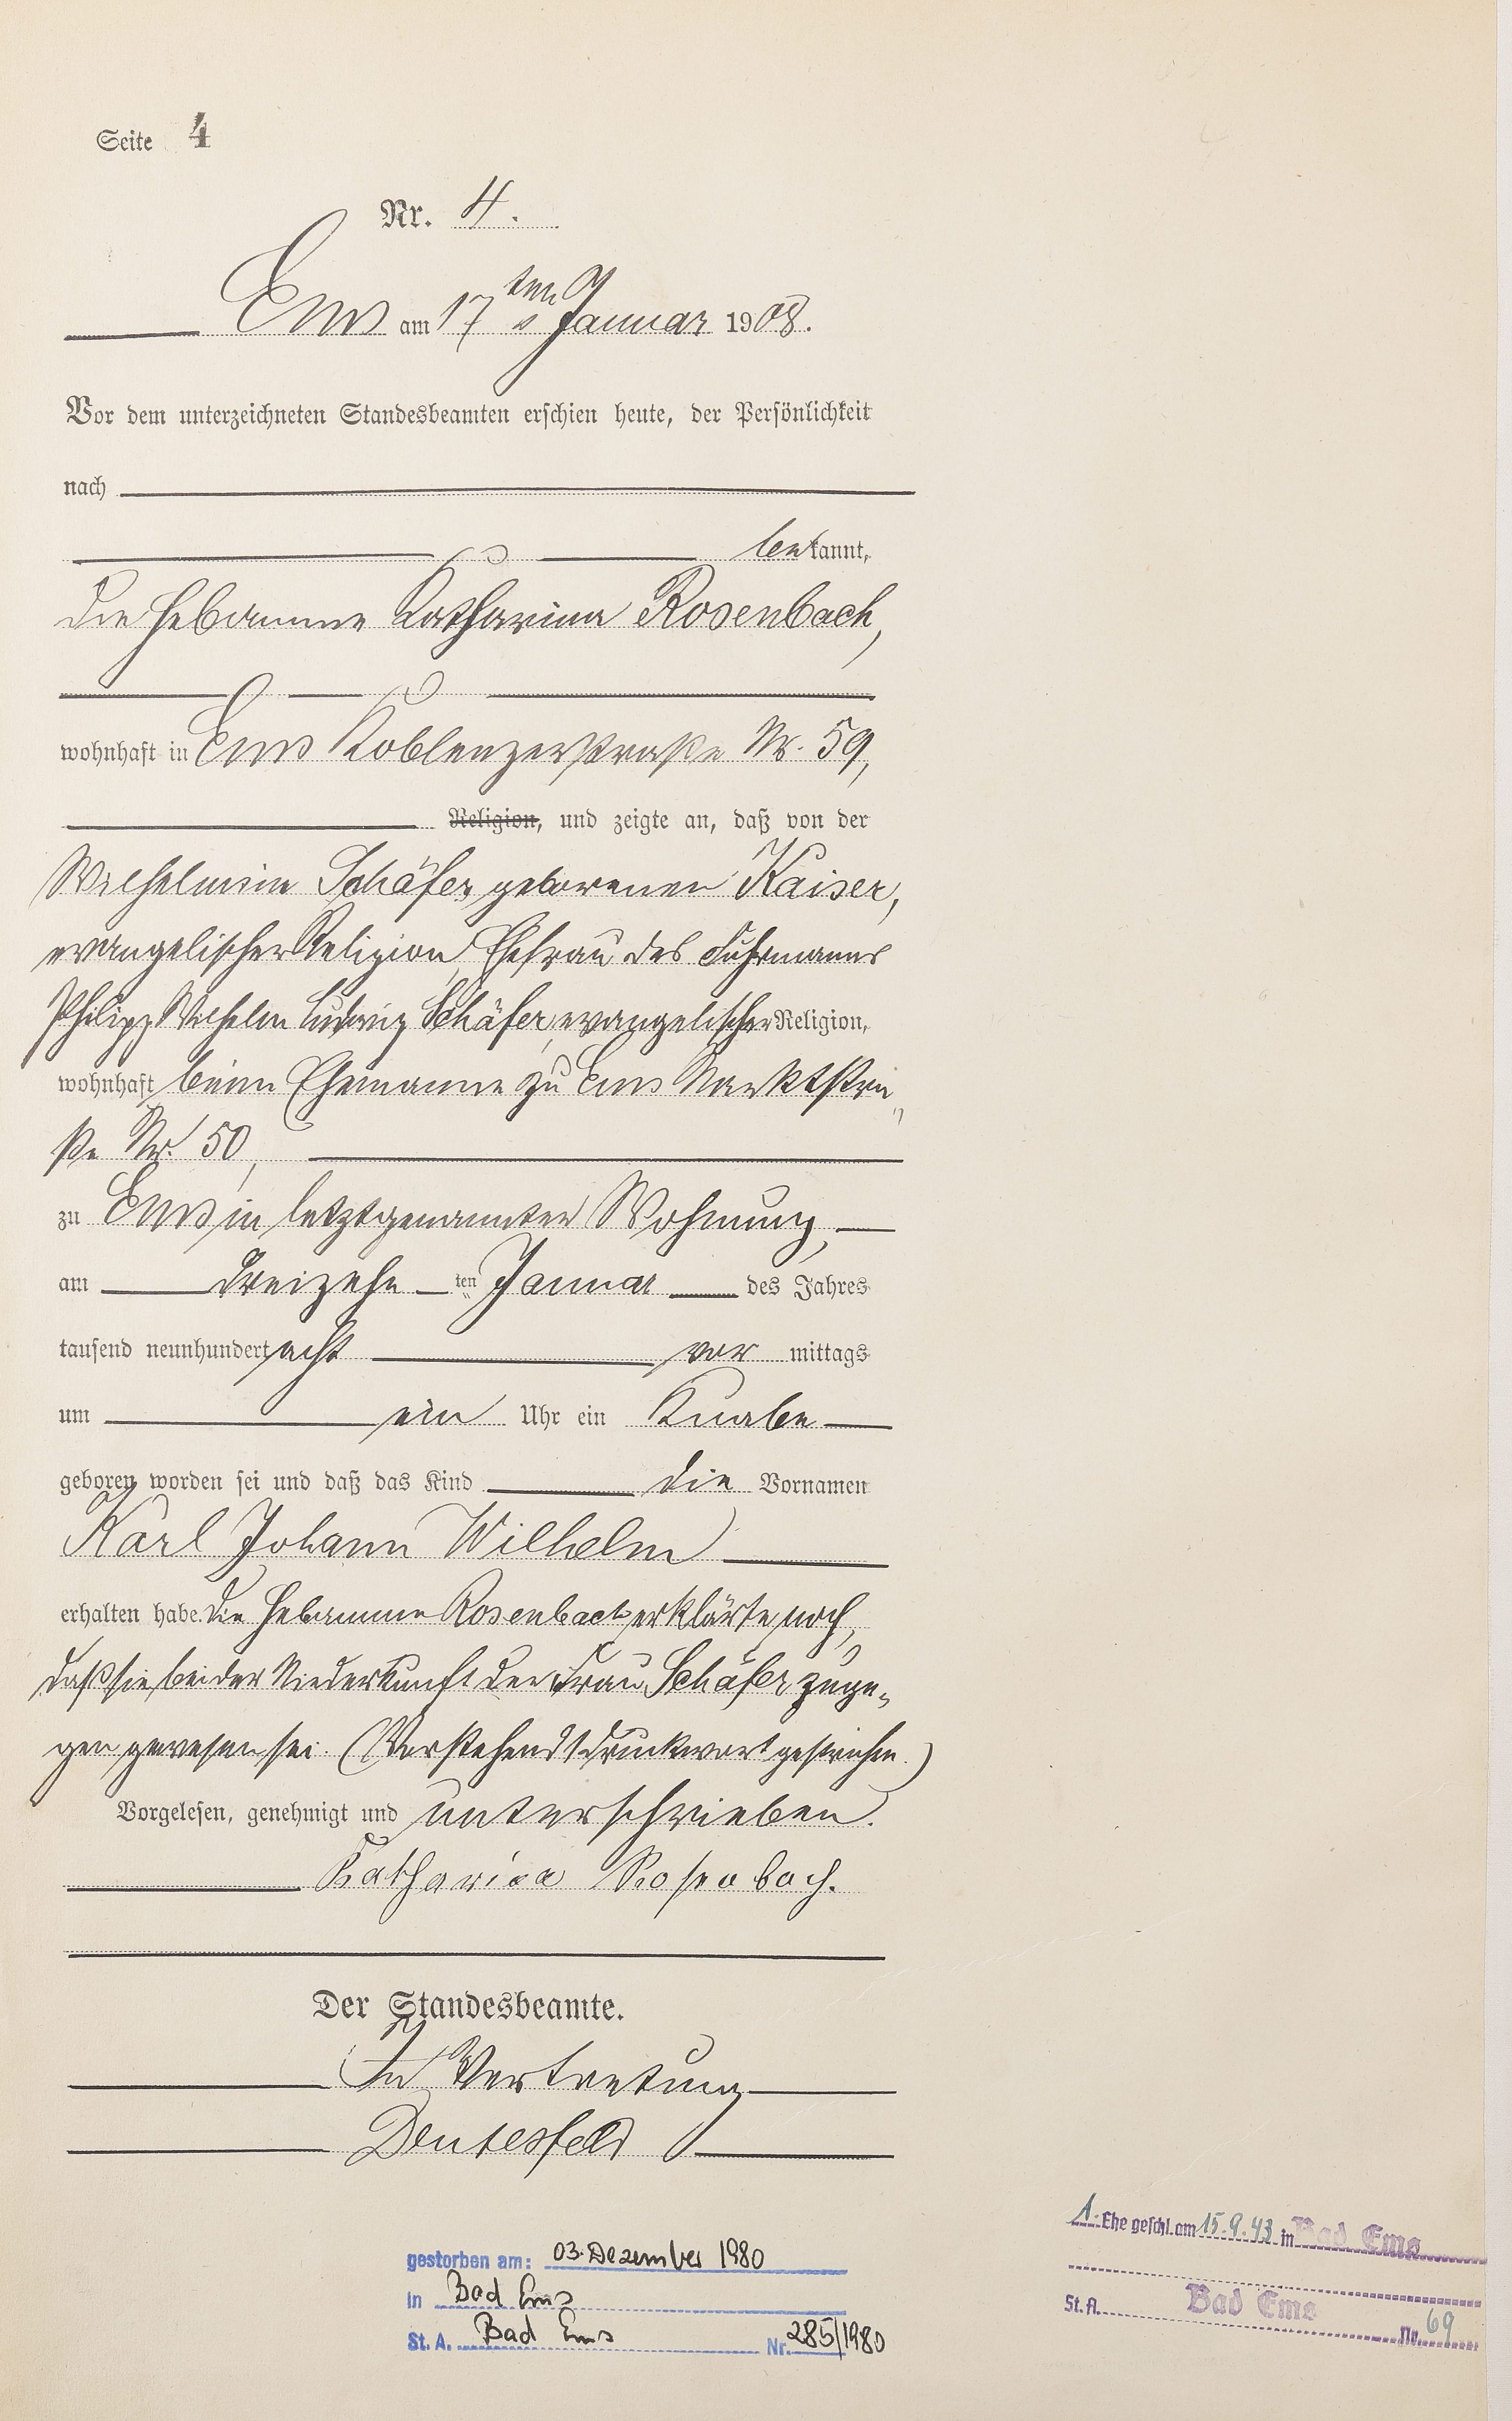 Seite 4
Nr. 4.
Ems am 17ten Januar 1908.
Vor dem unterzeichneten Standesbeamten erschien heute, der Persönlichkeit
nach
bekannt,
die Hebamme Katharina Rosenbach,
wohnhaft in Ems Koblenzerstraße Nr. 59,
Religion, und zeigte an, daß von der
Wilhelmine Schäfer geborenen Kaiser,
evangelischer Religion, Ehefrau des Fuhrmanns
Philipp Wilhelm Ludwig Schäfer, evangelischer Religion,
wohnhaft beim Ehemanne zu Ems Marktstra„
ße Nr. 50,
zu Ems in letztgenannter Wohnung,
am dreizehn ten Januar des Jahres
tausend neunhundert acht vor mittags
um ein Uhr ein Knabe
geboren worden sei und daß das Kind die Vornamen
Karl Johann Wilhelm
erhalten habe. Die Hebamme Rosenbach erklärte noch,
daß sie bei der Niederkunft der Frau Schäfer zuge„
gen gewesen sei. (Vorstehend 1 Druckwort gestrichen.)
Vorgelesen, genehmigt und unterschrieben.
Katharina Rosenbach.
Der Standesbeamte.
In Vertretung
gestorben am: 03. Dezember 1980
in Bad Ems
St. A. Bad Ems Nr. 285/1980
1. Ehe geschl. am 15.9.43 in Bad Ems
St. A. Bad Ems
Nr. 69